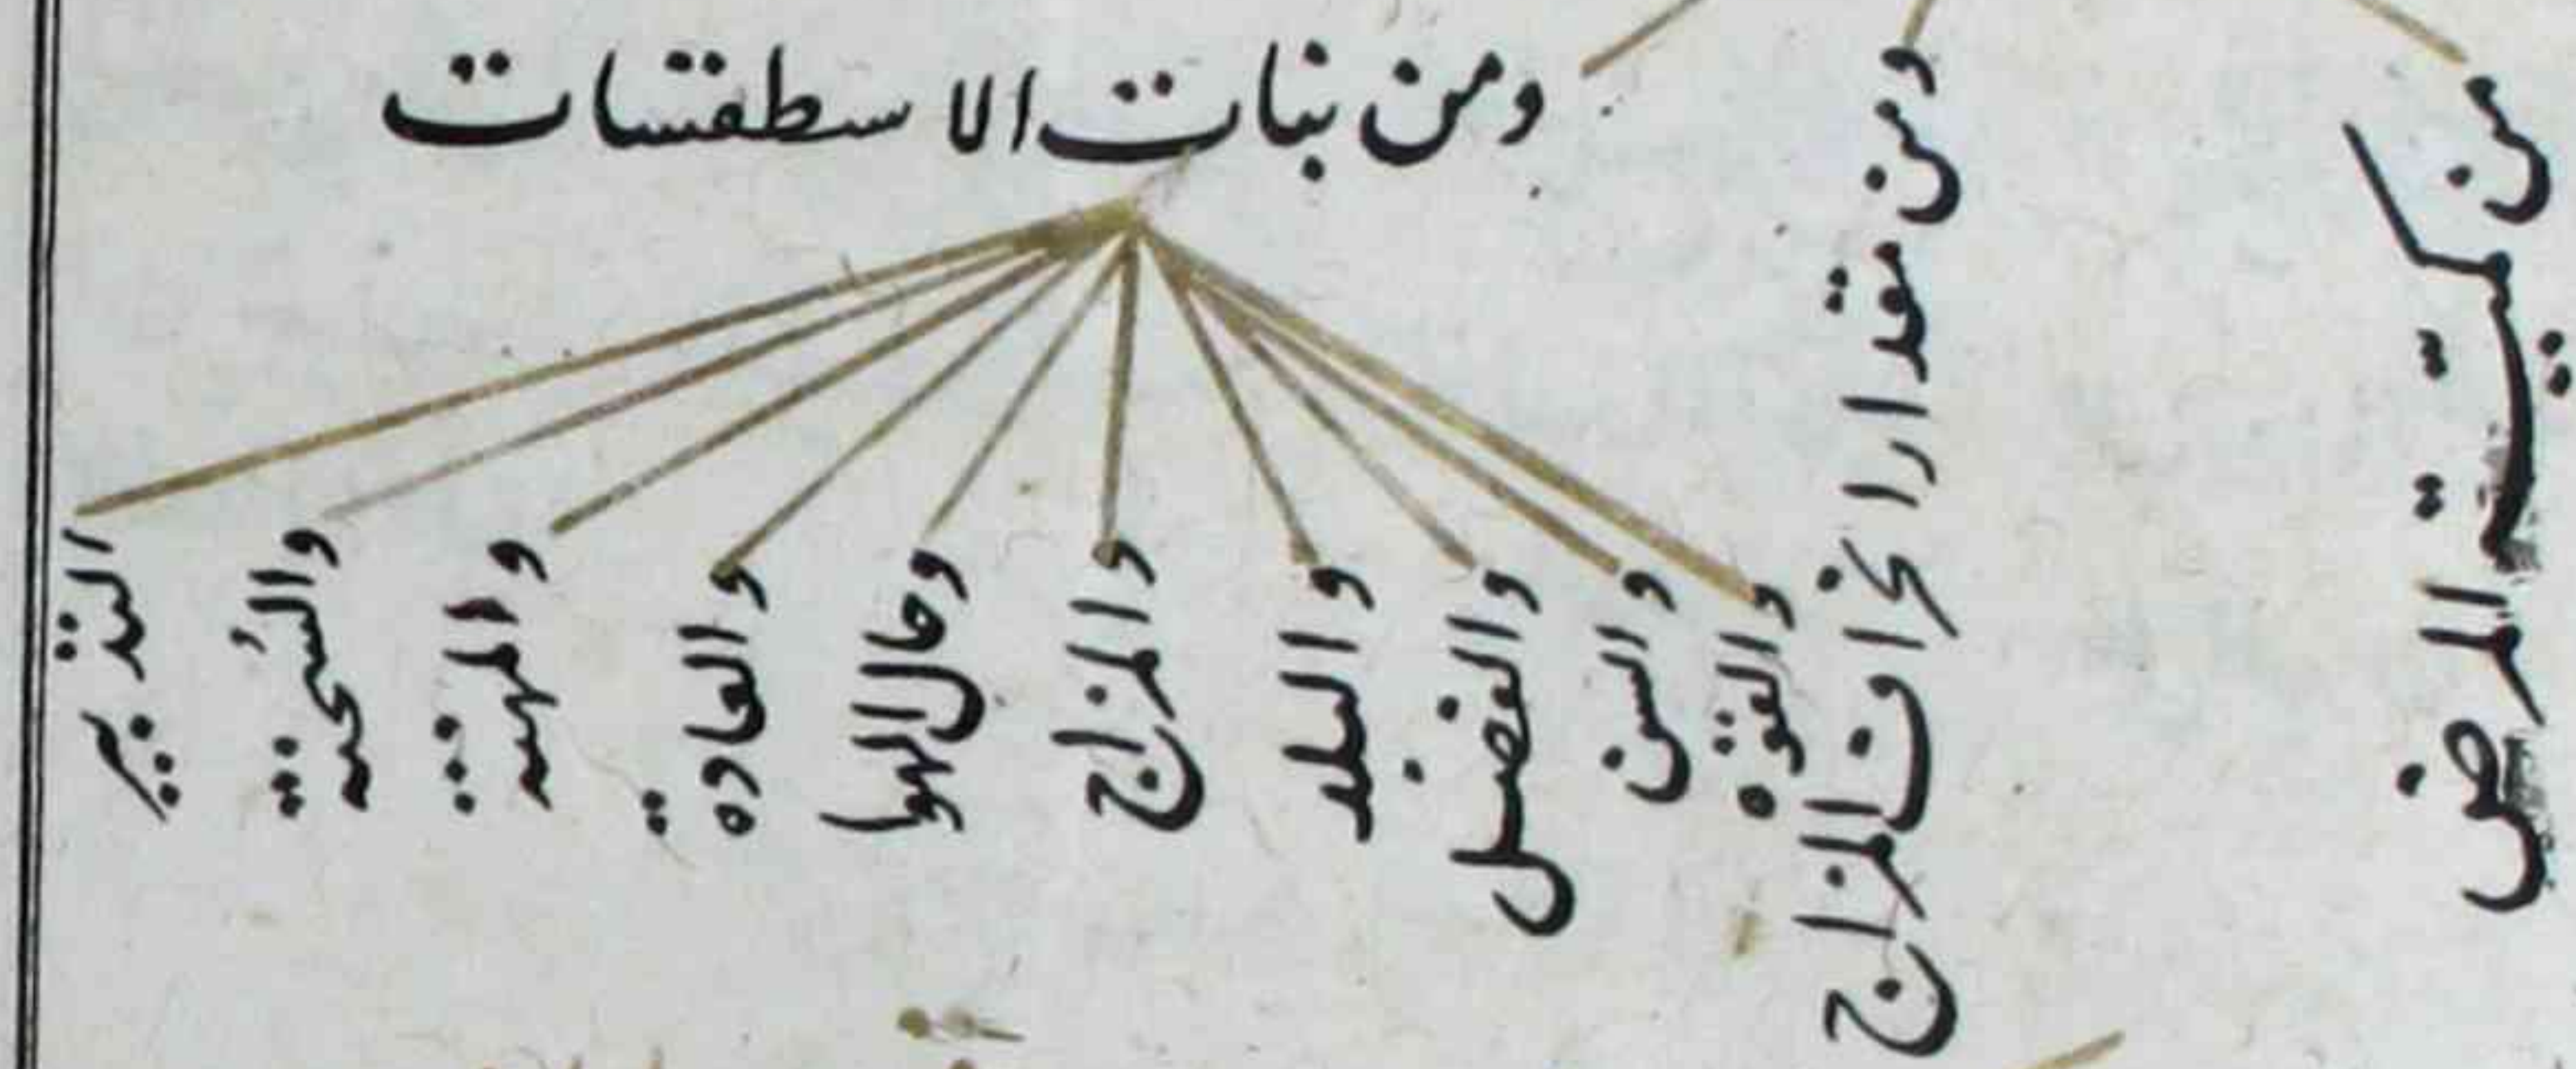 من كمية المرض
ومن مقدار انحراف المزاج
ومن بنات الاسطقسات
والقوة
والسن
والفصل
والبلد
والمزاج
وحال الهوا
والعادة
والمهنة
والسُحنة
التدبير